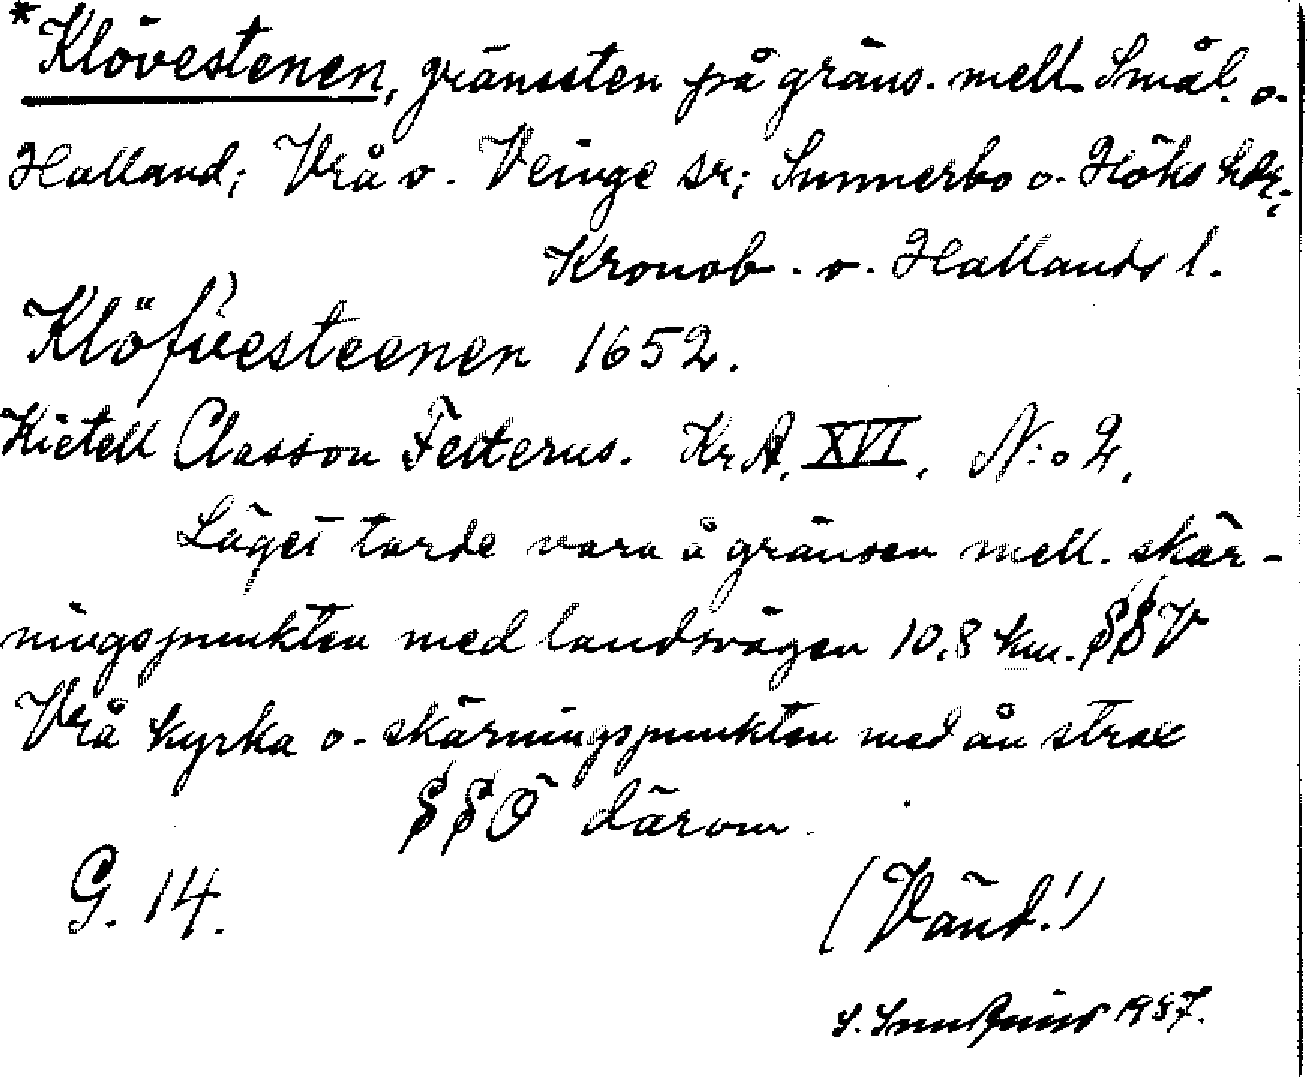 *Klövestenen, gränssten på gräns. mell. Smål. o.
Halland; Vrå o. Veinge sr; Sunnerbo o. Höks hdr;
Kronob. o. Hallands l.
Klöfvesteenen 1652.
Kietell Classon Felterus. KrA. XVI. N:o 2.
Läget torde vara å gränsen mell. skär-
ningspunkten med landsvägen 10,8 km. SSV
Vrå kyrka o. skärningspunkten med ån strax
SSÖ därom.
G. 14.
(Vänd!)
1937.